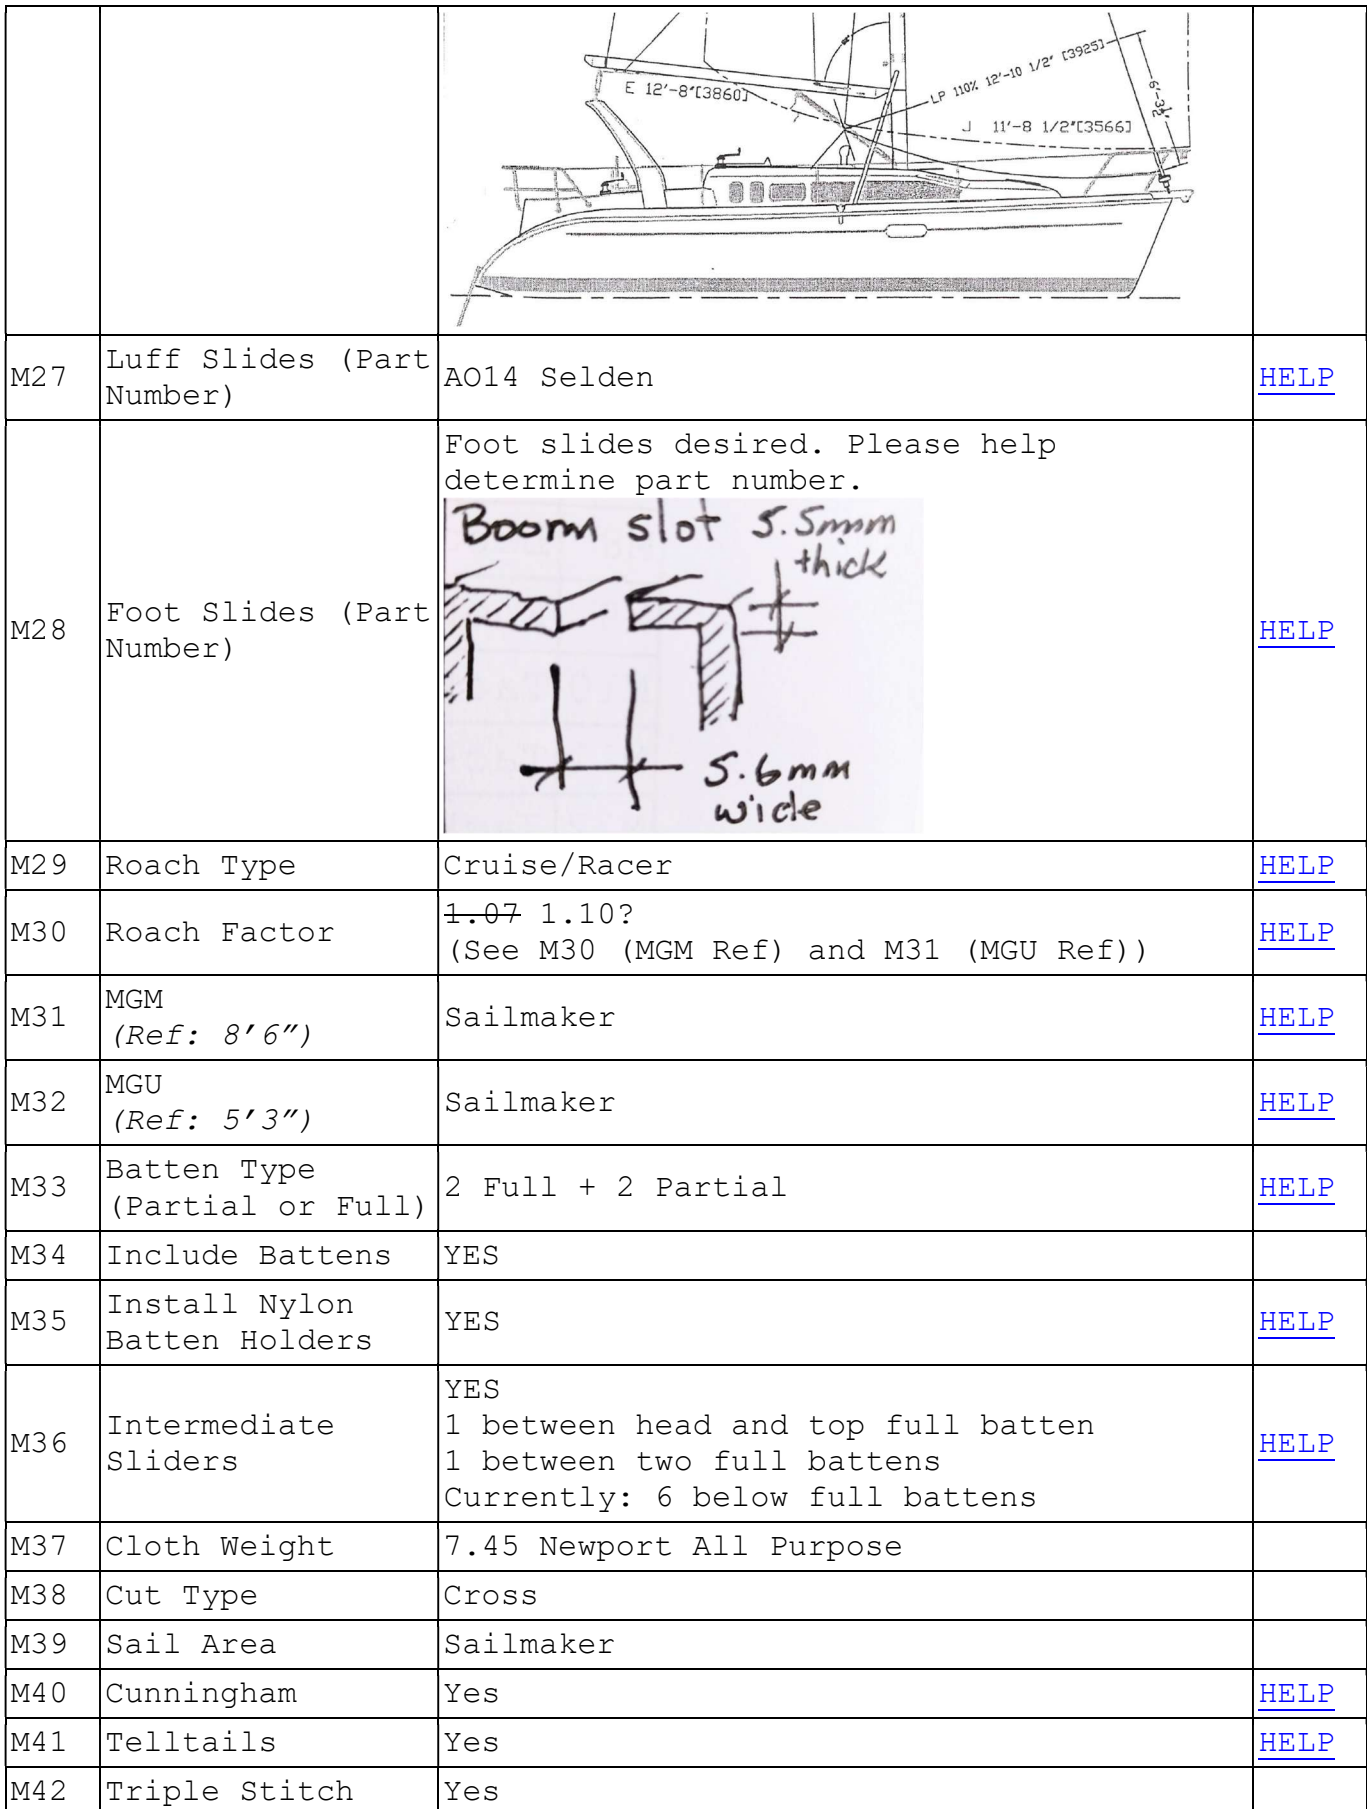 E 12'-8"[3860]
LP 110% 12'-10 1/2" [3925]
6'-3½"
J 11'-8 1/2"[3566]
M27
Luff Slides (Part
Number)
AO14 Selden
HELP
M28
Foot Slides (Part
Number)
Foot slides desired. Please help
determine part number.
Boom slot 5.5mm
thick
5.6mm
wide
HELP
M29
Roach Type
Cruise/Racer
HELP
M30
Roach Factor
1.07 1.10?
(See M30 (MGM Ref) and M31 (MGU Ref))
HELP
M31
MGM
(Ref: 8'6")
Sailmaker
HELP
M32
MGU
(Ref: 5'3")
Sailmaker
HELP
M33
Batten Type
(Partial or Full)
2 Full + 2 Partial
HELP
M34
Include Battens
YES
M35
Install Nylon
Batten Holders
YES
HELP
M36
Intermediate
Sliders
YES
1 between head and top full batten
1 between two full battens
Currently: 6 below full battens
HELP
M37
Cloth Weight
7.45 Newport All Purpose
M38
Cut Type
Cross
M39
Sail Area
Sailmaker
M40
Cunningham
Yes
HELP
M41
Telltails
Yes
HELP
M42
Triple Stitch
Yes